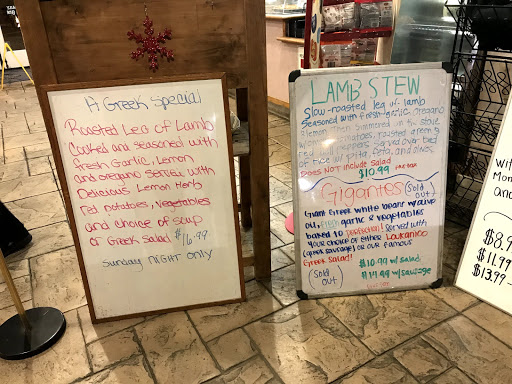 A Greek Special
Roasted Leg of Lamb
Cooked and seasoned with
fresh Garlic, Lemon
and oregano served with
Delicious, Lemon Herb
red potatoes, vegetables
and choice of soup
or Greek Salad $16.99
Sunday NIGHT Only
LAMB STEW
Slow-roasted leg of lamb
seasoned with fresh garlic, oregano
& lemon then simmered in a stove
with tomatoes, roasted green &
red peppers, served over bed
of rice w/ pita, feta, and olives.
Does NOT include Salad
$10.99
Gigantes (Sold out)
Giant Greek white beans w/ olive
oil, fresh garlic & vegetables
baked to perfection! Served with
your choice of either Loukaniko
(greek sausage) or our famous
Greek Salad!
(Sold out)
$10.99 w/ salad
$14.99 w/ sausage
wit
Mon
and
$8.9
$11.99
$13.99